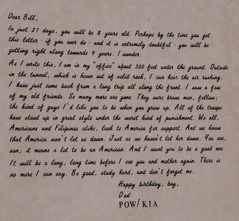 Dear Bill,
In just 27 days, you will be 8 years old. Perhaps by the time you get
this letter - if you ever do - and it is extremely doubtful - you will be
getting right along towards 9 years. I wonder.
As I write this, I am in my "office" about 300 feet under the ground. Outside
in the tunnel, which is hewn out of solid rock, I can hear the air rushing.
I have just come back from a long trip all along the front. I saw a few
of my old friends. So many more are gone. They were brave men, fellow;
the kind of guys I'd like you to be when you grow up. All of the troops
have stood up in great style under the worst kind of punishment. We all,
Americans and Filipinos alike, look to America for support. And we know
that America won't let us down. Just as we haven't let her down. You see,
son, it means a lot to be an American. And I want you to be a good one.
It will be a long, long time before I see you and mother again. There is
no more I can say. Be good, study hard, and don't forget me.
Happy birthday, boy,
Dad
POW/KIA